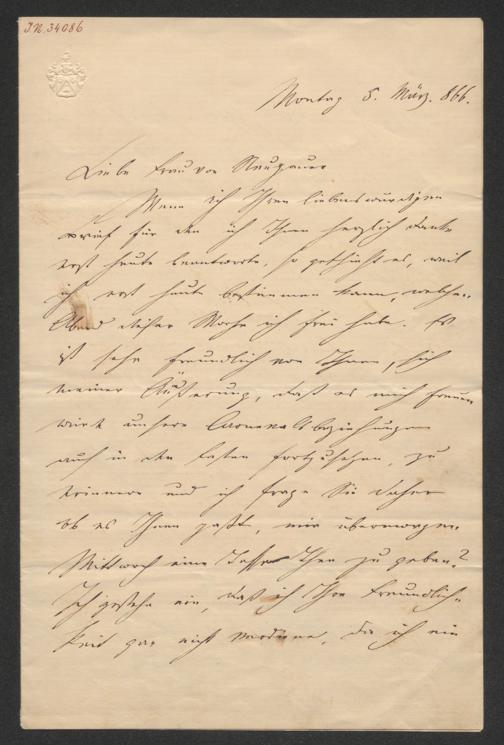 I.N. 34086
Montag 5. März. 866.
Liebe Frau von
Wenn ich Ihren liebenswürdigen
Brief für den ich Ihnen herzlich danke
erst heute beantworte, so geschieht es, weil
ich erst heute bestimmen kann, welchen
Abend dieser Woche ich frei habe. Es
ist sehr freundlich von Ihnen, sich
meiner Äußerung, daß es mich freuen
wird unsere Carnevalsbeziehungen
auch in den Fasten fortzusetzen, zu
erinnern und ich frage Sie daher
ob es Ihnen paßt, mir übermorgen
Mittwoch eine Tasse Thee zu geben?
Ich gestehe ein, daß ich Ihre Freundlich-
keit gar nicht verdiene, da ich ein